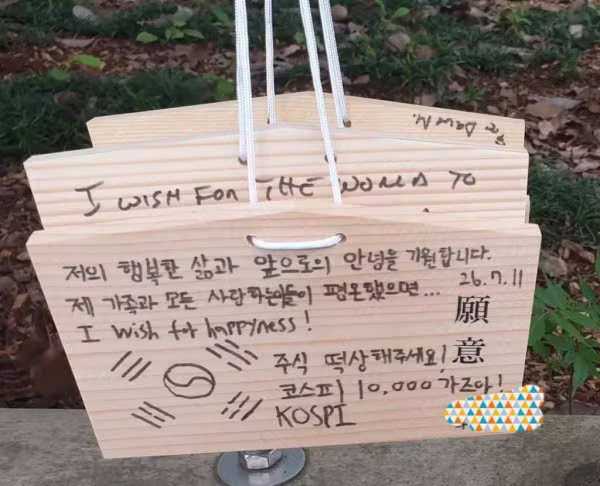 I WISH FOR THE WORLD TO
저의 행복한 삶과 앞으로의 안녕을 기원합니다.
26.7.11
제 가족과 모든 사랑하는이들이 평온했으면...
I wish for happyness!
願意
주식 떡상해주세요!
코스피 10,000 가즈아!
KOSPI